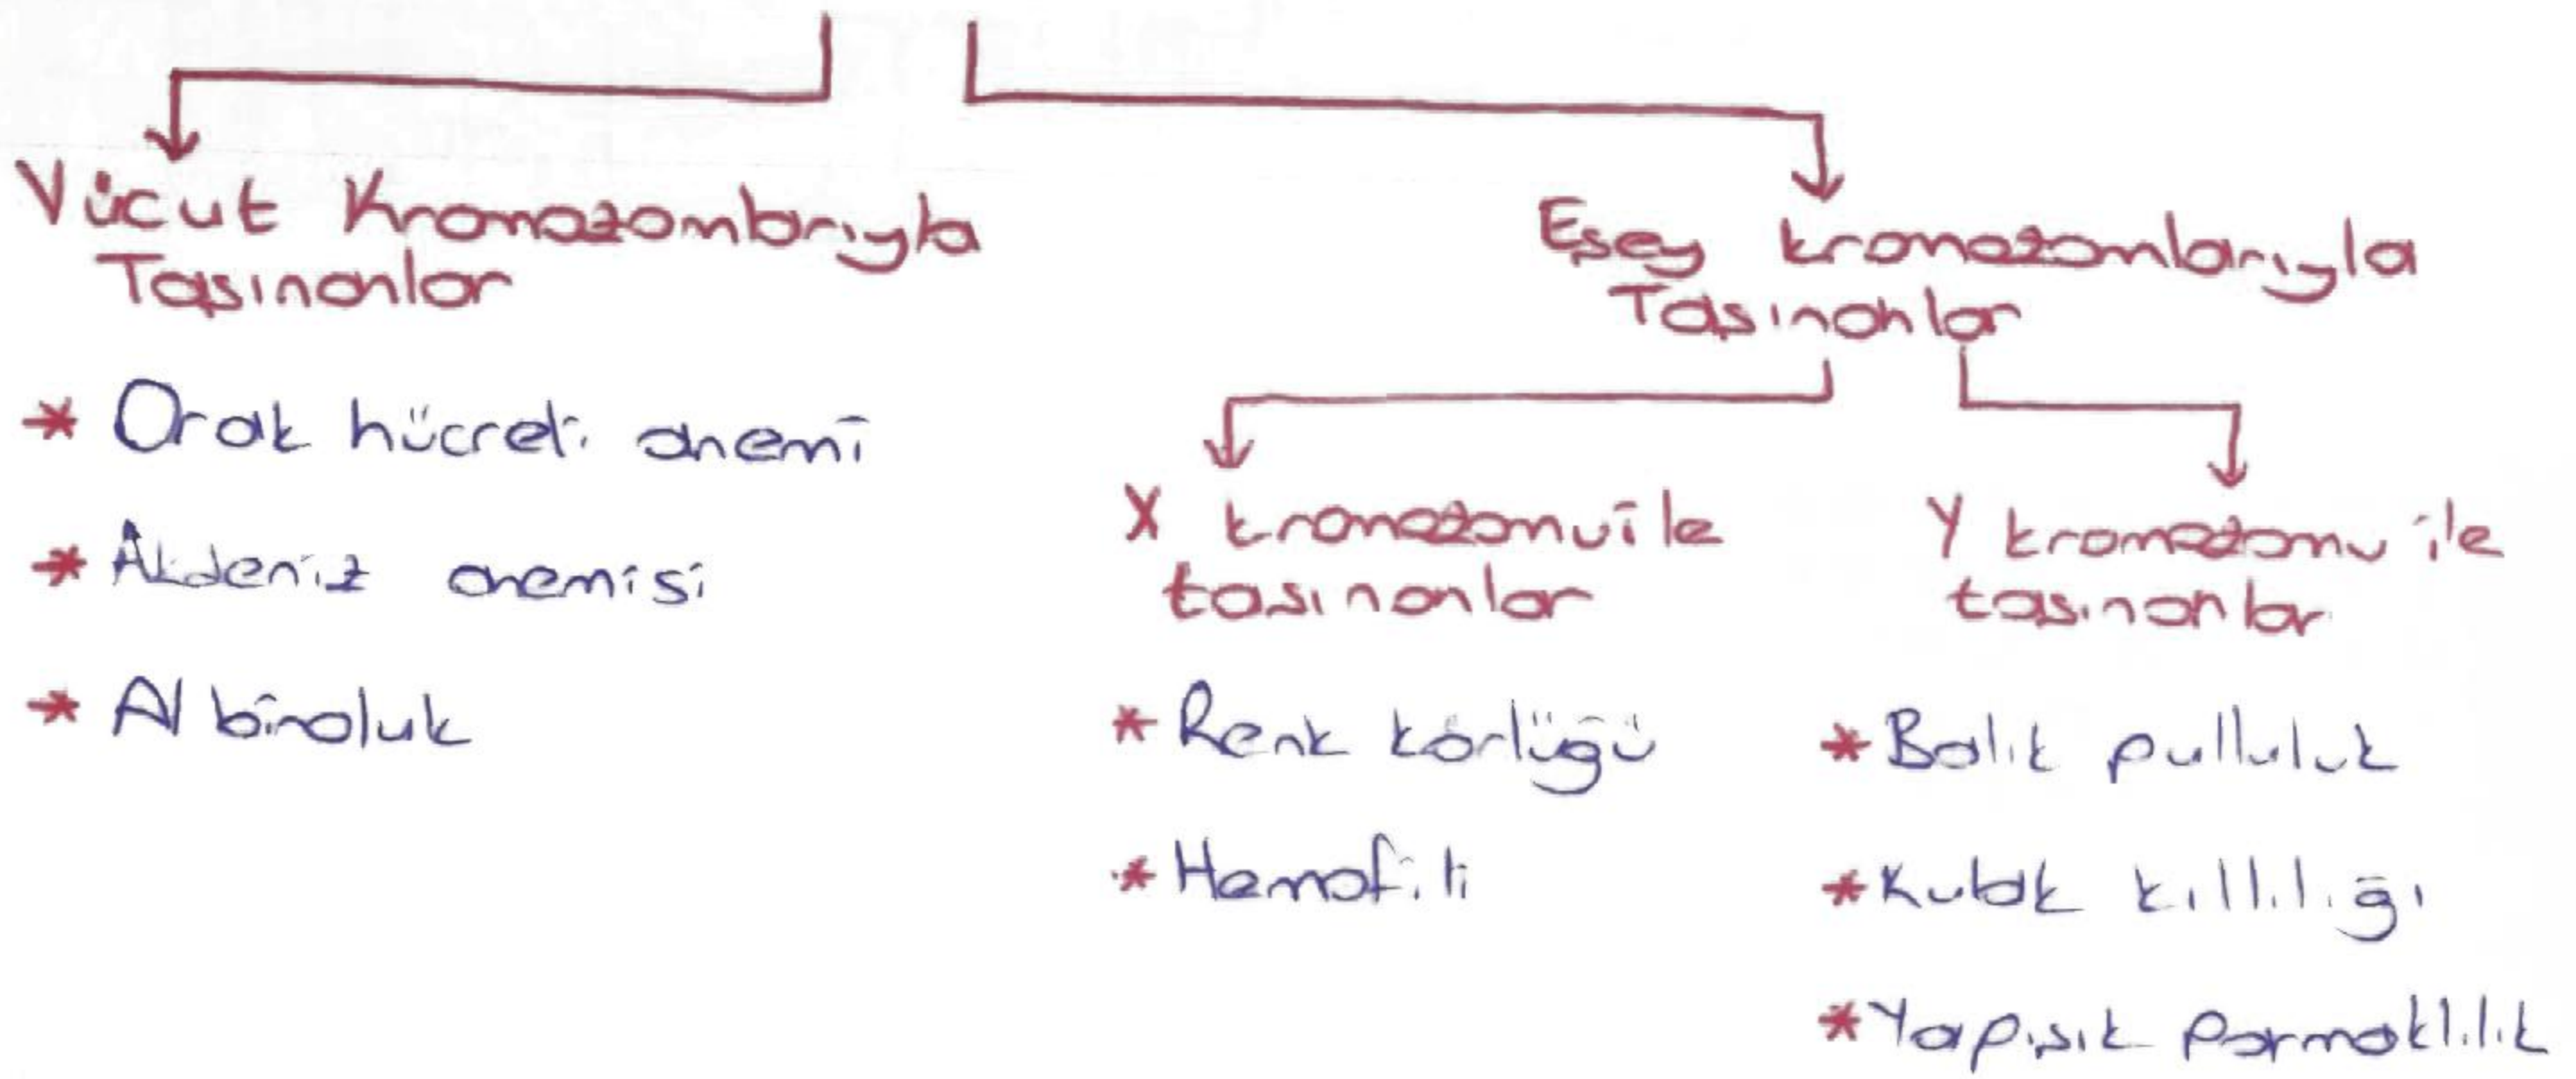 Vücut Kromozomlarıyla
Taşınanlar
* Orak hücreli anemi
* Akdeniz anemisi
* Albinoluk
Eşey kromozomlarıyla
Taşınanlar
X kromozomu ile
taşınanlar
* Renk körlüğü
* Hemofili
Y kromozomu ile
taşınanlar
* Balık pulluluk
* Kulak kıllılığı
* Yapışık parmaklılık